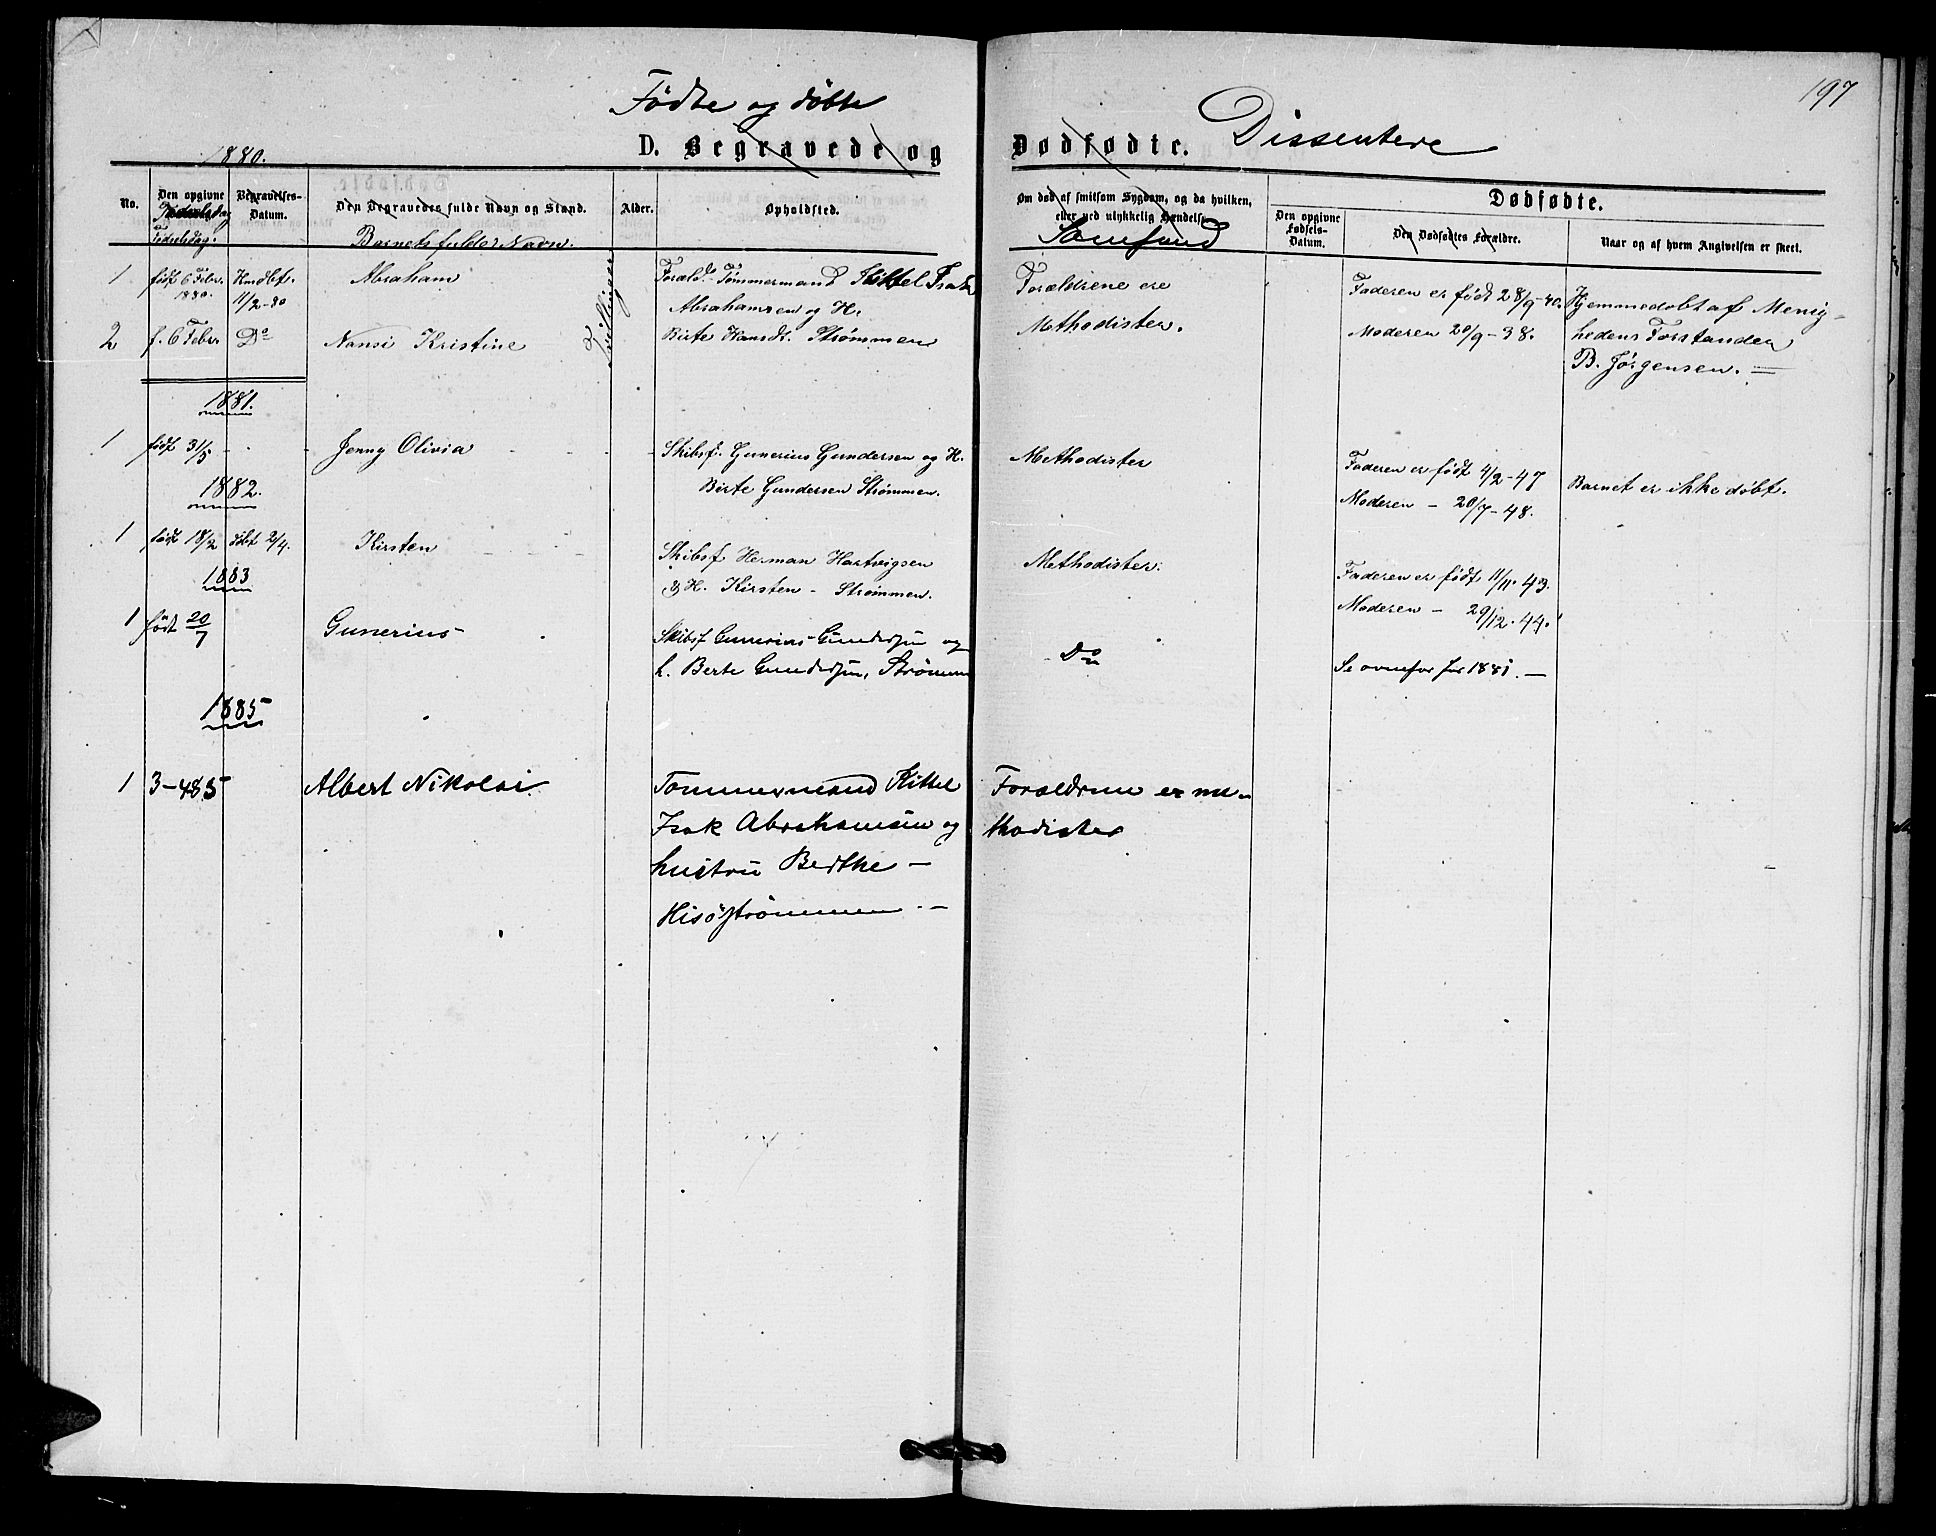 197
Fødte og døbte
Dissentere
D. Begravede og Dødfødte.
1880.
No.
Den opgivne
Fødselsdag.
Begravelses-
Datum.
Den Begravedes fulde Navn og Stand.
Barnets fulde Navn.
Alder.
Opholdsted.
Om død af smitsom Sygdom, og da hvilken,
eller ved ulykkelig Hændelse.
Samfund
Dødfødte.
Den opgivne
Fødsels-
Datum.
Den Dødfødtes Forældre.
Naar og af hvem Angivelsen er skeet.
1
født 6 Febr.
1880.
Hmdbt.
11/2-80
Abraham
Tvillinger
Foræld. Tømmermand Kittel Isak
Abrahamsen og H.
Birte Hansdt. Strømmen
Forældrene ere
Methodister.
Faderen er født 28/9-40.
Moderen 20/9-38.
Hjemmedøbt af Menig-
hedens Forstander
B. Jørgensen.
2
f. 6 Febr.
Do
Nansi Kristine
1881.
1
født 31/5
Jenny Olivia
Skibsf. Gunerius Gundersen og H.
Birte Gundersen Strømmen.
Methodister
Faderen er født 4/2-47
Moderen - 20/7-48.
Barnet er ikke døbt.
1882.
1
født 18/2
døbt 2/4.
Kirsten
Skibsf Herman Hartvigsen
& H. Kirsten - Strømmen.
Methodister.
Faderen er født 11/11.43.
Moderen - 29/12.44.
1883
1
født 20/7
Gunerius
Skibsf Gunerius Gundersen og
h. Berte Gundersen, Strømmen
Do
Se ovenfor for 1881. —
1885
1
3-4 85
Albert Nikolai
Tømmermand Kittel
Isak Abrahamsen og
hustru Berthe —
Hisøstrømmen. —
Forældrene er me-
thodister